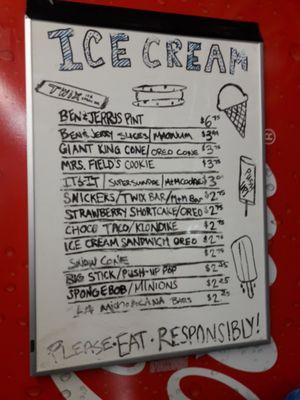 ICE CREAM
TWIX
BEN & JERRYS PINT $6.75
BEN & JERRY SLICES/MAGNUM $3.
GIANT KING CONE/OREO CONE $3.75
MRS. FIELD'S COOKIE $3.75
IT'S IT/SUPERSUNDAE/M+M COOKIE $3.
SNICKERS/TWIX BAR/M+M BAR $2.75
STRAWBERRY SHORTCAKE/OREO $2.75
CHOCO TACO/KLONDIKE $2.75
ICE CREAM SANDWICH OREO $2.75
SNOW CONE $2.
BIG STICK/PUSH-UP POP $2.25
SPONGEBOB/MINIONS $2.25
LA MICHOACANA BARS $2.
PLEASE·EAT·RESPONSIBLY!